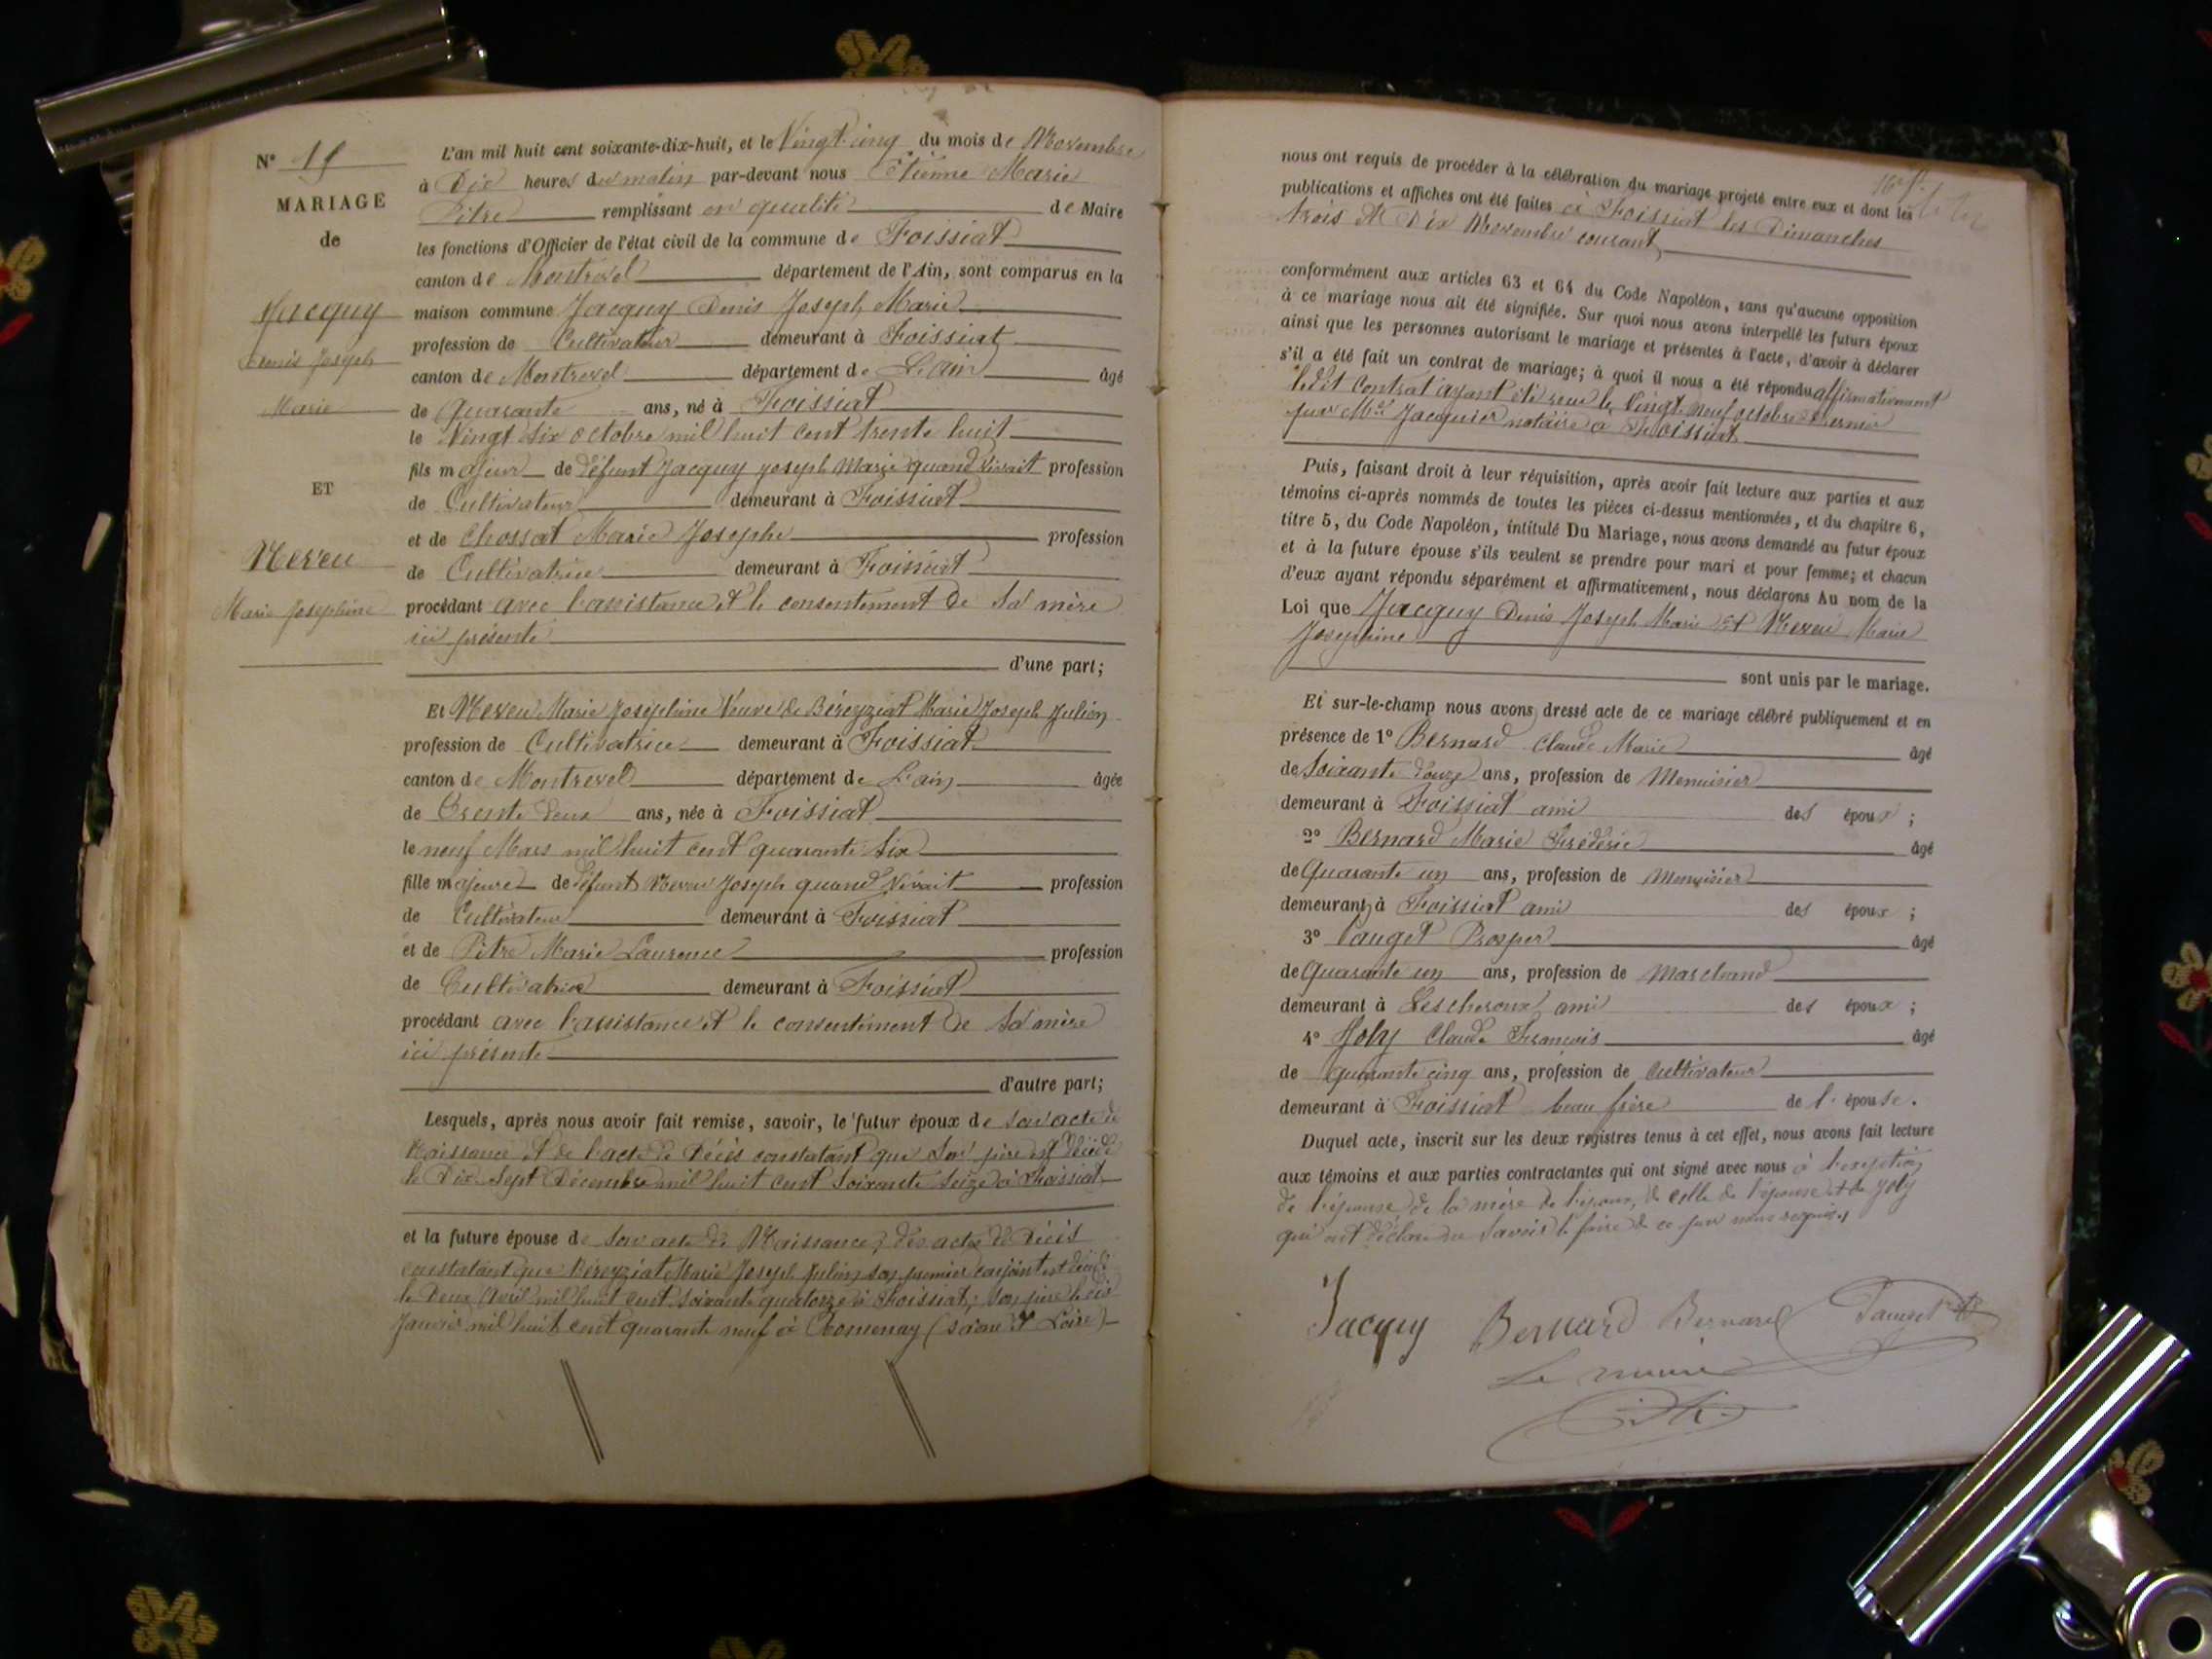 N° 15
MARIAGE
de
Jacquy
Denis Joseph
Marie
ET
Neveu
Marie Joséphine
L'an mil huit cent soixante-dix-huit, et le Vingt cinq du mois de Novembre
à Dix heures du matin par-devant nous Etienne Marie
Pitre remplissant en qualité de Maire
les fonctions d'Officier de l'état civil de la commune de Foissiat
canton de Montrevel département de l'Ain, sont comparus en la
maison commune Jacquy Denis Joseph Marie
profession de Cultivateur demeurant à Foissiat
canton de Montrevel département de L'ain âgé
de Quarante ans, né à Foissiat
le Vingt six octobre mil huit cent trente huit
fils majeur de défunt Jacquy Joseph Marie quand vivait profession
de Cultivateur demeurant à Foissiat
et de Chossat Marie Josephe profession
de Cultivatrice demeurant à Foissiat
procédant avec l'assistance et le consentement de sa mère
ici présente
d'une part;
Et Neveu Marie Joséphine Veuve de Béreyziat Marie Joseph Julien
profession de Cultivatrice demeurant à Foissiat
canton de Montrevel département de L'ain âgée
de Trente deux ans, née à Foissiat
le neuf Mars mil huit cent quarante six
fille majeure de défunt Neveu Joseph quand vivait profession
de Cultivateur demeurant à Foissiat
et de Pitre Marie Laurence profession
de Cultivatrice demeurant à Foissiat
procédant avec l'assistance et le consentement de sa mère
ici présente
d'autre part;
Lesquels, après nous avoir fait remise, savoir, le futur époux de son acte de
Naissance et de l'acte de Décès constatant que son père est décédé
le Dix-Sept Décembre mil huit cent soixante seize à Foissiat
et la future épouse de son acte de Naissance, des actes de Décès
constatant que Béreyziat Marie Joseph Julien son premier conjoint est décédé
le Deux Avril mil huit cent soixante quatorze à Foissiat; son père le dix
Janvier mil huit cent quarante neuf à Romenay (Saône et Loire)
nous ont requis de procéder à la célébration du mariage projeté entre eux et dont les
publications et affiches ont été faites à Foissiat les Dimanches
trois et Dix Novembre courant
conformément aux articles 63 et 64 du Code Napoléon, sans qu'aucune opposition
à ce mariage nous ait été signifiée. Sur quoi nous avons interpellé les futurs époux
ainsi que les personnes autorisant le mariage et présentes à l'acte, d'avoir à déclarer
s'il a été fait un contrat de mariage; à quoi il nous a été répondu affirmativement
ledit contrat ayant été reçu le Vingt neuf octobre dernier
par Me Jacquier notaire à Foissiat
Puis, faisant droit à leur réquisition, après avoir fait lecture aux parties et aux
témoins ci-après nommés de toutes les pièces ci-dessus mentionnées, et du chapitre 6,
titre 5, du Code Napoléon, intitulé Du Mariage, nous avons demandé au futur époux
et à la future épouse s'ils veulent se prendre pour mari et pour femme; et chacun
d'eux ayant répondu séparément et affirmativement, nous déclarons Au nom de la
Loi que Jacquy Denis Joseph Marie et Neveu Marie
Joséphine
sont unis par le mariage.
Et sur-le-champ nous avons dressé acte de ce mariage célébré publiquement et en
présence de 1° Bernard Claude Marie âgé
de Soixante douze ans, profession de Menuisier
demeurant à Foissiat ami des époux ;
2° Bernard Marie Frédéric âgé
de Quarante un ans, profession de Menuisier
demeurant à Foissiat ami des époux ;
3° Pauget Prosper âgé
de Quarante un ans, profession de Marchand
demeurant à Lescheroux ami des époux ;
4° Joly Claude François âgé
de quarante cinq ans, profession de Cultivateur
demeurant à Foissiat beau frère de l'épouse.
Duquel acte, inscrit sur les deux registres tenus à cet effet, nous avons fait lecture
aux témoins et aux parties contractantes qui ont signé avec nous à l'exception
de l'épouse, de la mère de l'époux, de celle de l'épouse et de Joly
qui ont déclaré ne savoir le faire de ce par nous requis
Jacquy Bernard Bernard Pauget
Le maire
Pitre